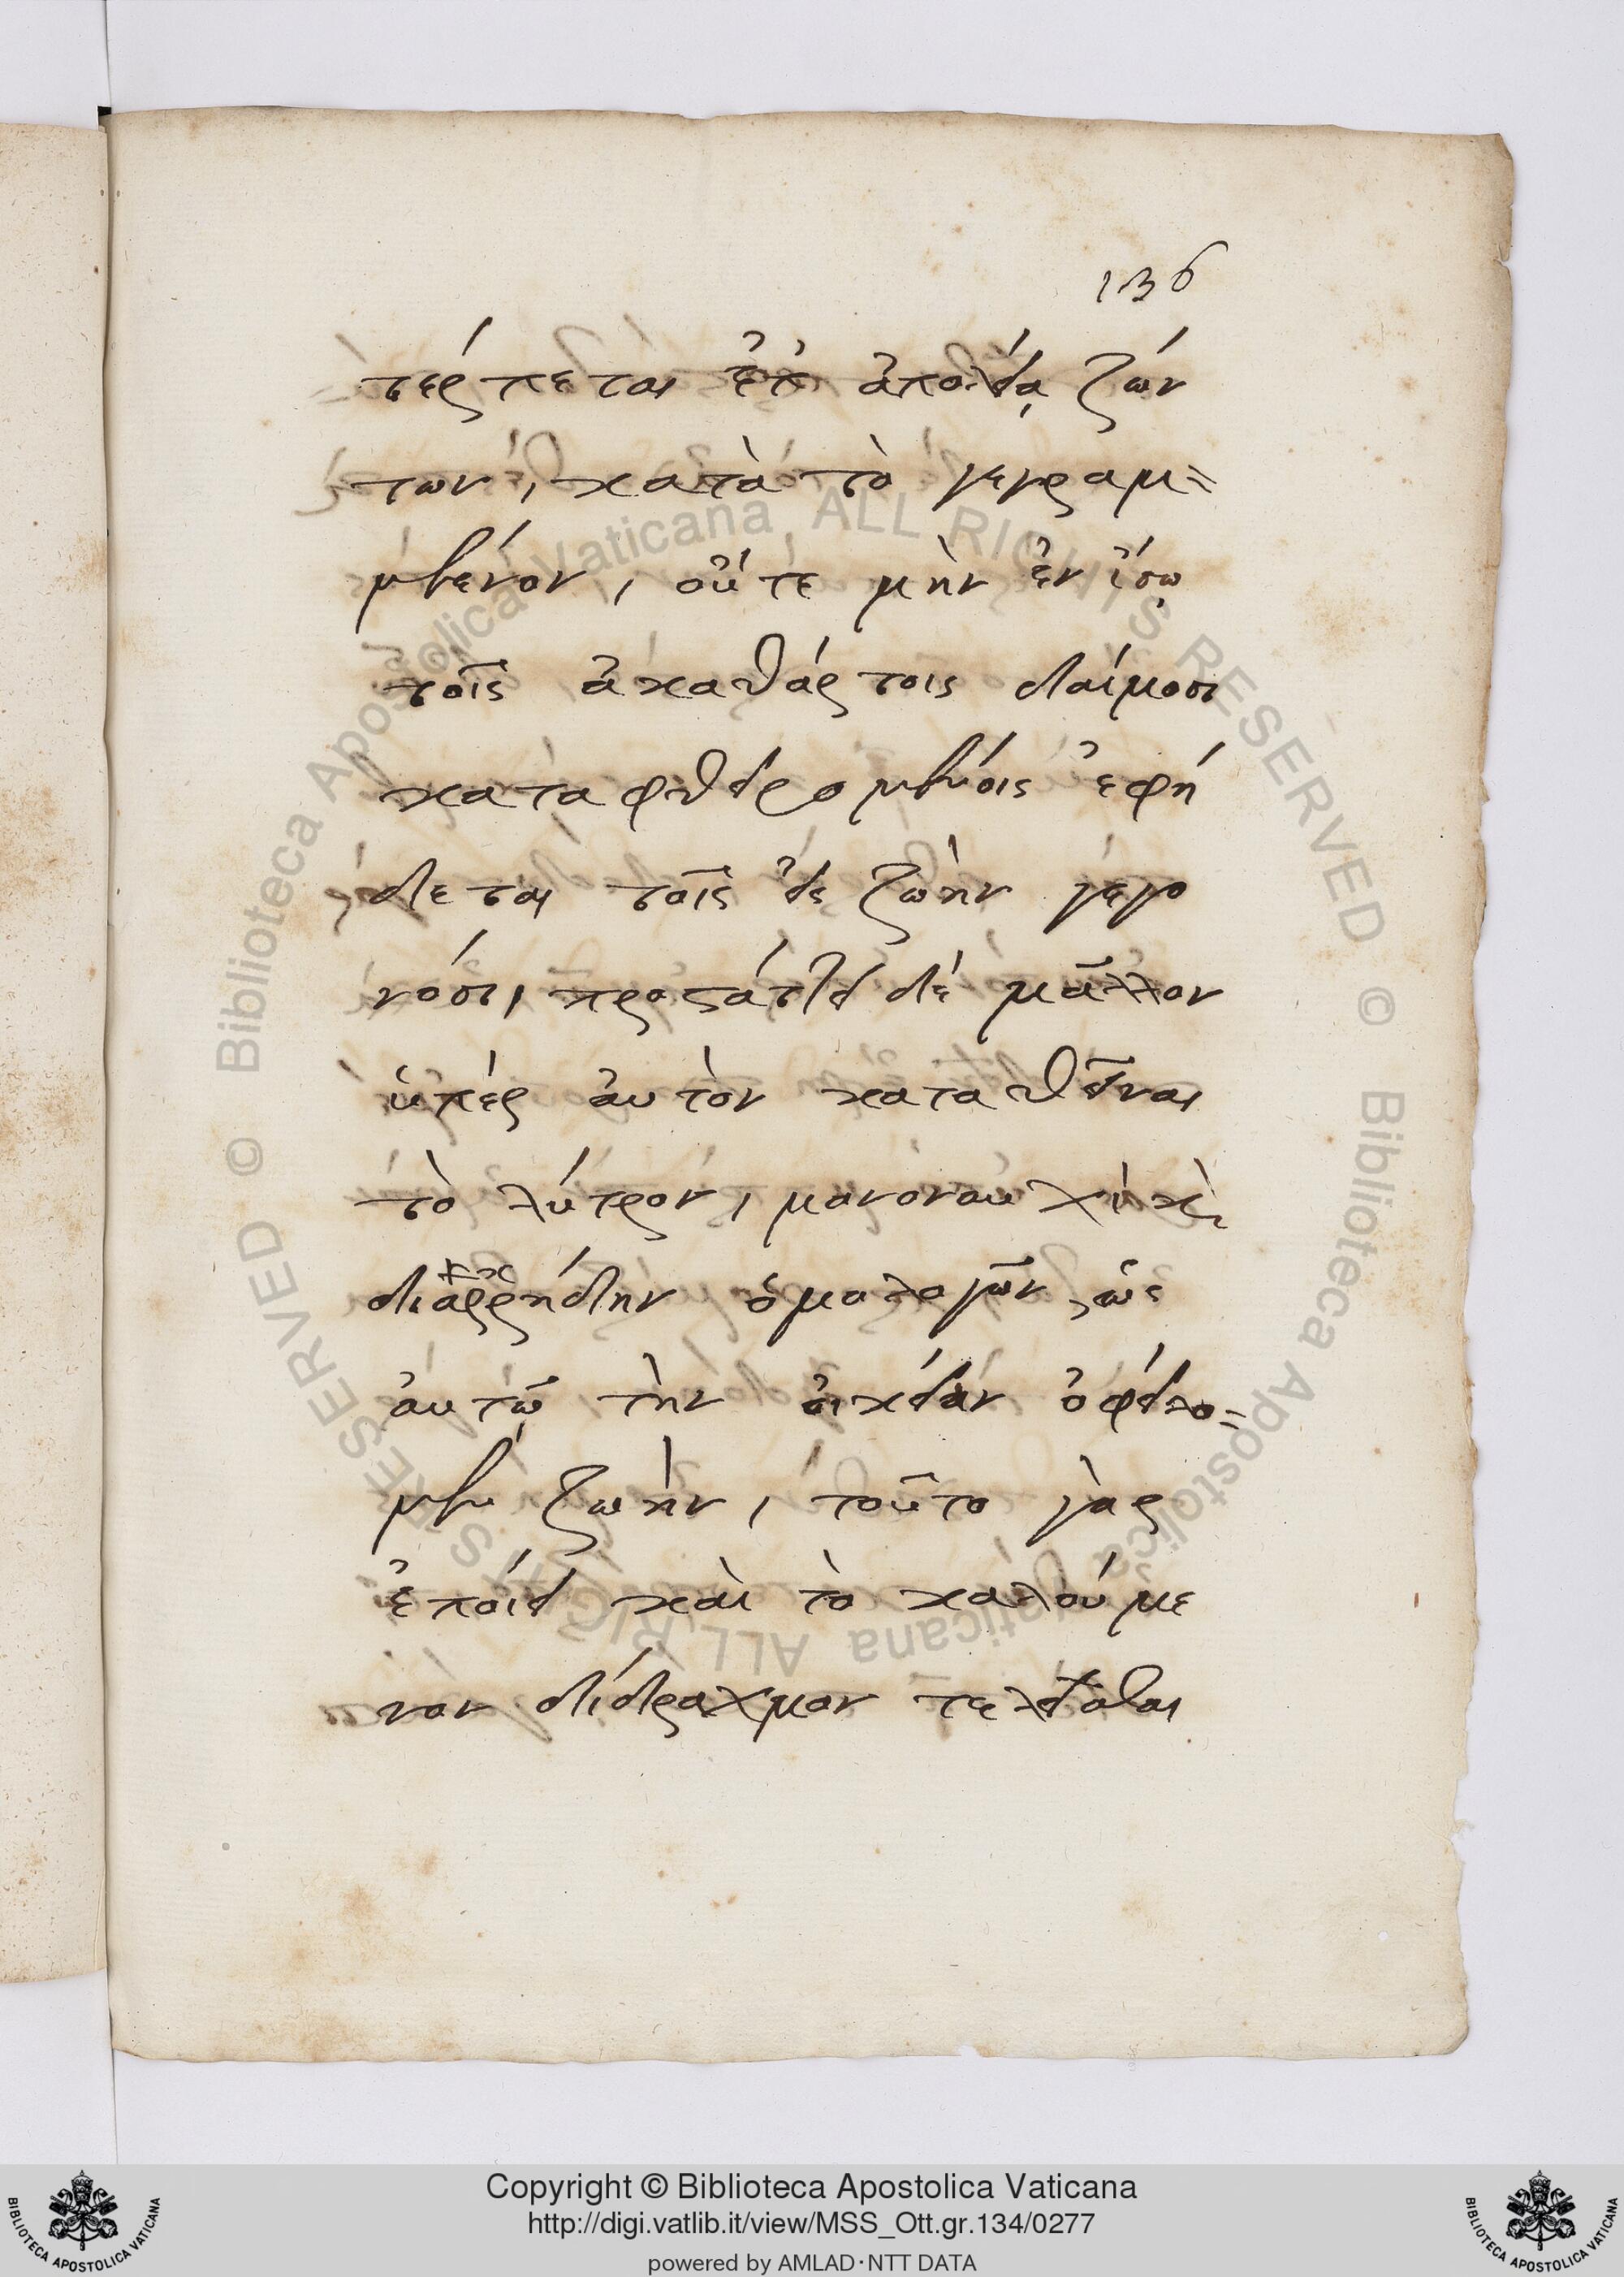 136
τέρπεται ἐπ' ἀπωλείᾳ ζών
των, κατὰ τὸ γεγραμ=
μένον, οὔτε μὴν ἐν ἴσῳ
τοῖς ἀκαθάρτοις δαίμοσι
καταφθειρομένοις ἐφή
δεται τοῖς εἰς ζωὴν γεγο
νόσι, προστάττει δὲ μᾶλλον
ὑπὲρ αὐτὸν καταθεῖναι
τὸ λύτρον, μονονουχὶ κὶ
διαρρήδην ὁμολογῶν, ὡς
αὐτῷ τὴν οἰκείαν ὀφείλο=
μεν ζωὴν, τοῦτο γὰρ
ἐποίει καὶ τὸ καλούμε
νον δίδραχμον τελεῖσθαι
Copyright © Biblioteca Apostolica Vaticana
http://digi.vatlib.it/view/MSS_Ott.gr.134/0277
powered by AMLAD·NTT DATA
BIBLIOTECA APOSTOLICA VATICANA
BIBLIOTECA APOSTOLICA VATICANA
© Biblioteca Apostolica Vaticana ALL RIGHTS RESERVED
© Biblioteca Apostolica Vaticana ALL RIGHTS RESERVED